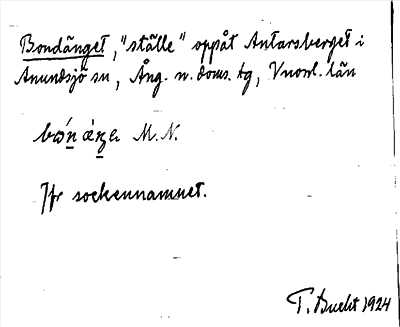 Bondänget, "ställe" oppåt Antarsberget i
Anundsjö sn, Ång. n. doms. tg, Vnorrl. län
M. N.
Jfr sockennamnet.
T. Bucht 1924